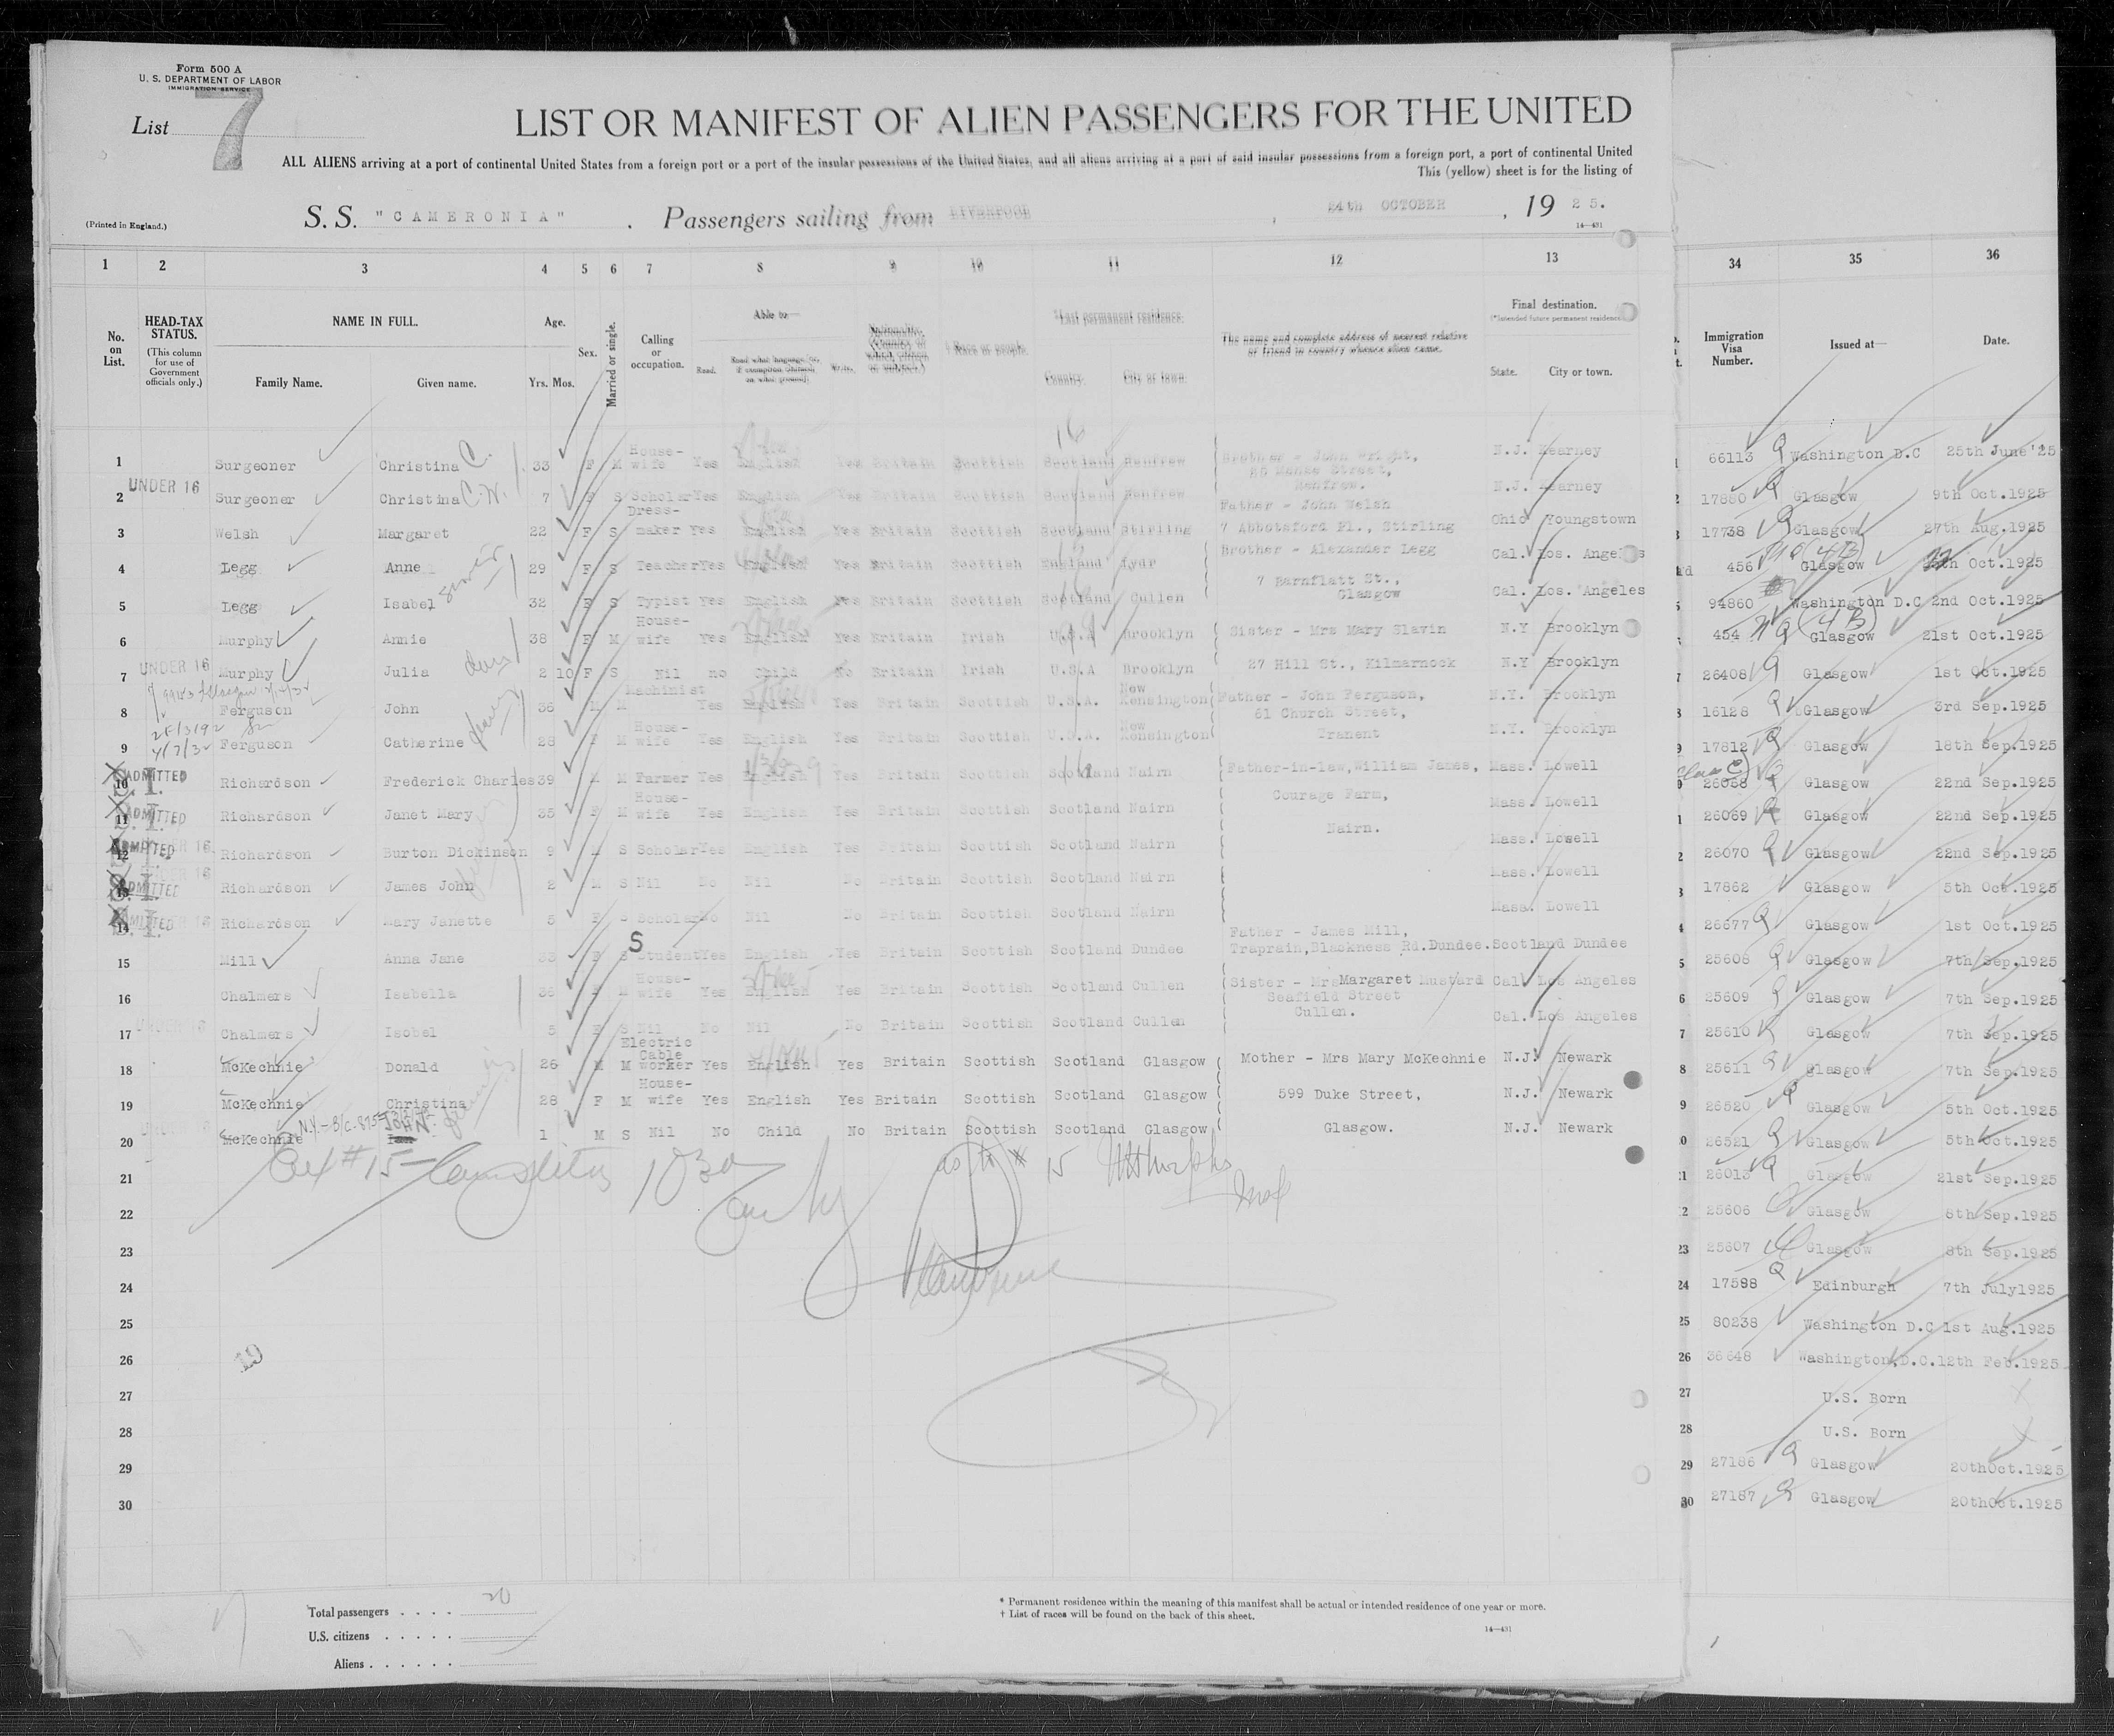 Form 500 A
U. S. DEPARTMENT OF LABOR
IMMIGRATION SERVICE
List 7
LIST OR MANIFEST OF ALIEN PASSENGERS FOR THE UNITED
ALL ALIENS arriving at a port of continental United States from a foreign port or a port of the insular possessions of the United States, and all aliens arriving at a port of said insular possessions from a foreign port, a port of continental United
This (yellow) sheet is for the listing of
(Printed in England.)
S. S. "CAMERONIA" . Passengers sailing from LIVERPOOL , 24th OCTOBER , 1925.
14—431
1 2 3 4 5 6 7 8 9 10 11 12 13 34 35 36
No. on List.
HEAD-TAX STATUS.
(This column for use of Government officials only.)
NAME IN FULL.
Family Name. Given name.
Age.
Yrs. Mos.
Sex.
Married or single.
Calling or occupation.
Able to—
Read. Read what language [or, if exemption claimed, on what ground]. Write.
Nationality. (Country of which citizen or subject.)
† Race or people.
*Last permanent residence.
Country. City or town.
The name and complete address of nearest relative or friend in country whence alien came.
Final destination.
(*Intended future permanent residence)
State. City or town.
Immigration Visa Number.
Issued at—
Date.
1 Surgeoner Christina C. 33 F M House-wife Yes English Yes Britain Scottish Scotland Renfrew Brother - John Wright, N.J. Kearney 66113 Washington D.C 25th June '25
Renfrew.
UNDER 16
2 Surgeoner Christina C.W. 7 F S Scholar Yes English Yes Britain Scottish Scotland Renfrew N.J. Kearney 17880 Glasgow 9th Oct.1925
Father - John Welsh
3 Welsh Margaret 22 F S Dress-maker Yes English Yes Britain Scottish Scotland Stirling 7 Abbotsford Pl., Stirling Ohio Youngstown 17738 Glasgow 27th Aug.1925
4 Legg Anne 29 F S Teacher Yes English Yes Britain Scottish Brother - Alexander Legg Cal. Los. Angeles 456 (4B) Glasgow Oct.1925
7 Barnflatt St., Glasgow
5 Legg Isabel 32 F S Typist Yes English Yes Britain Scottish Scotland Cullen Cal. Los. Angeles 94860 Washington D.C 2nd Oct.1925
6 Murphy Annie 38 F M House-wife Yes English Yes Britain Irish U.S.A Brooklyn Sister - Mrs Mary Slavin N.Y Brooklyn 454 (4B) Glasgow 21st Oct.1925
UNDER 16
7 Murphy Julia 2 10 F S Nil no Child No Britain Irish U.S.A Brooklyn 27 Hill St., Kilmarnock N.Y Brooklyn 26408 Glasgow 1st Oct.1925
8 Ferguson John 36 M M Machinist Yes English Yes Britain Scottish U.S.A. New Kensington Father - John Ferguson, N.Y. Brooklyn 16128 Glasgow 3rd Sep.1925
61 Church Street,
9 Ferguson Catherine 28 F M House-wife Yes English Yes Britain Scottish U.S.A. New Kensington Tranent N.Y. Brooklyn 17812 Glasgow 18th Sep.1925
ADMITTED
10 Richardson Frederick Charles 39 M M Farmer Yes English Yes Britain Scottish Scotland Nairn Father-in-law, William James, Mass. Lowell 26068 Glasgow 22nd Sep.1925
Courage Farm,
ADMITTED
11 Richardson Janet Mary 35 F M House-wife Yes English Yes Britain Scottish Scotland Nairn Mass. Lowell 26069 Glasgow 22nd Sep.1925
Nairn.
ADMITTED
12 Richardson Burton Dickinson 9 M S Scholar Yes English Yes Britain Scottish Scotland Nairn Mass. Lowell 26070 Glasgow 22nd Sep.1925
ADMITTED
13 Richardson James John 2 M S Nil No Nil No Britain Scottish Scotland Nairn Mass. Lowell 17862 Glasgow 5th Oct.1925
ADMITTED
14 Richardson Mary Janette 5 F S Scholar No Nil No Britain Scottish Scotland Nairn Mass. Lowell 26677 Glasgow 1st Oct.1925
Father - James Mill,
15 Mill Anna Jane F S Student Yes English Yes Britain Scottish Scotland Dundee Traprain, Blackness Rd. Dundee. Scotland Dundee 25608 Glasgow 7th Sep.1925
16 Chalmers Isabella 36 F M House-wife Yes English Yes Britain Scottish Scotland Cullen Sister - Mrs Margaret Mustard Cal. Los Angeles 25609 Glasgow 7th Sep.1925
Seafield Street
Cullen.
17 Chalmers Isobel 5 F S Nil No Nil No Britain Scottish Scotland Cullen Cal. Los Angeles 25610 Glasgow 7th Sep.1925
18 McKechnie Donald 26 M M Electric Cable worker Yes English Yes Britain Scottish Scotland Glasgow Mother - Mrs Mary McKechnie N.J. Newark 25611 Glasgow 7th Sep.1925
19 McKechnie Christina 28 F M House-wife Yes English Yes Britain Scottish Scotland Glasgow 599 Duke Street, N.J. Newark 26520 Glasgow 5th Oct.1925
20 McKechnie JOHN 1 M S Nil No Child No Britain Scottish Scotland Glasgow Glasgow. N.J. Newark 26521 Glasgow 5th Oct.1925
21 26013 Glasgow 21st Sep.1925
22 25606 Glasgow 8th Sep.1925
23 25607 Glasgow 8th Sep.1925
24 17588 Edinburgh 7th July1925
25 80238 Washington D.C 1st Aug.1925
26 36648 Washington.D.C. 12th Feb.1925
27 U.S. Born
28 U.S. Born
29 27186 Glasgow 20thOct.1925
30 27187 Glasgow 20thOct.1925
Total passengers . . . . 20
U.S. citizens . . . . .
Aliens . . . . . .
* Permanent residence within the meaning of this manifest shall be actual or intended residence of one year or more.
† List of races will be found on the back of this sheet.
14—431